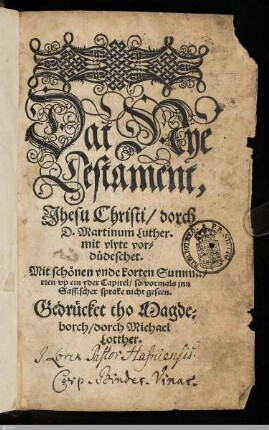 Dat Nye
Testament,
Jhesu Christi/ dorch
D. Martinum Luther.
mit vlyte vor-
düdeschet.
Mit schönen vnde korten Summa-
rien vp ein yder Capitel/ so vormals jnn
Sassischer sprake nicht geseen.
Gedrücket tho Magde-
borch/ dorch Michael
Lotther.
Pastor Hafniensis